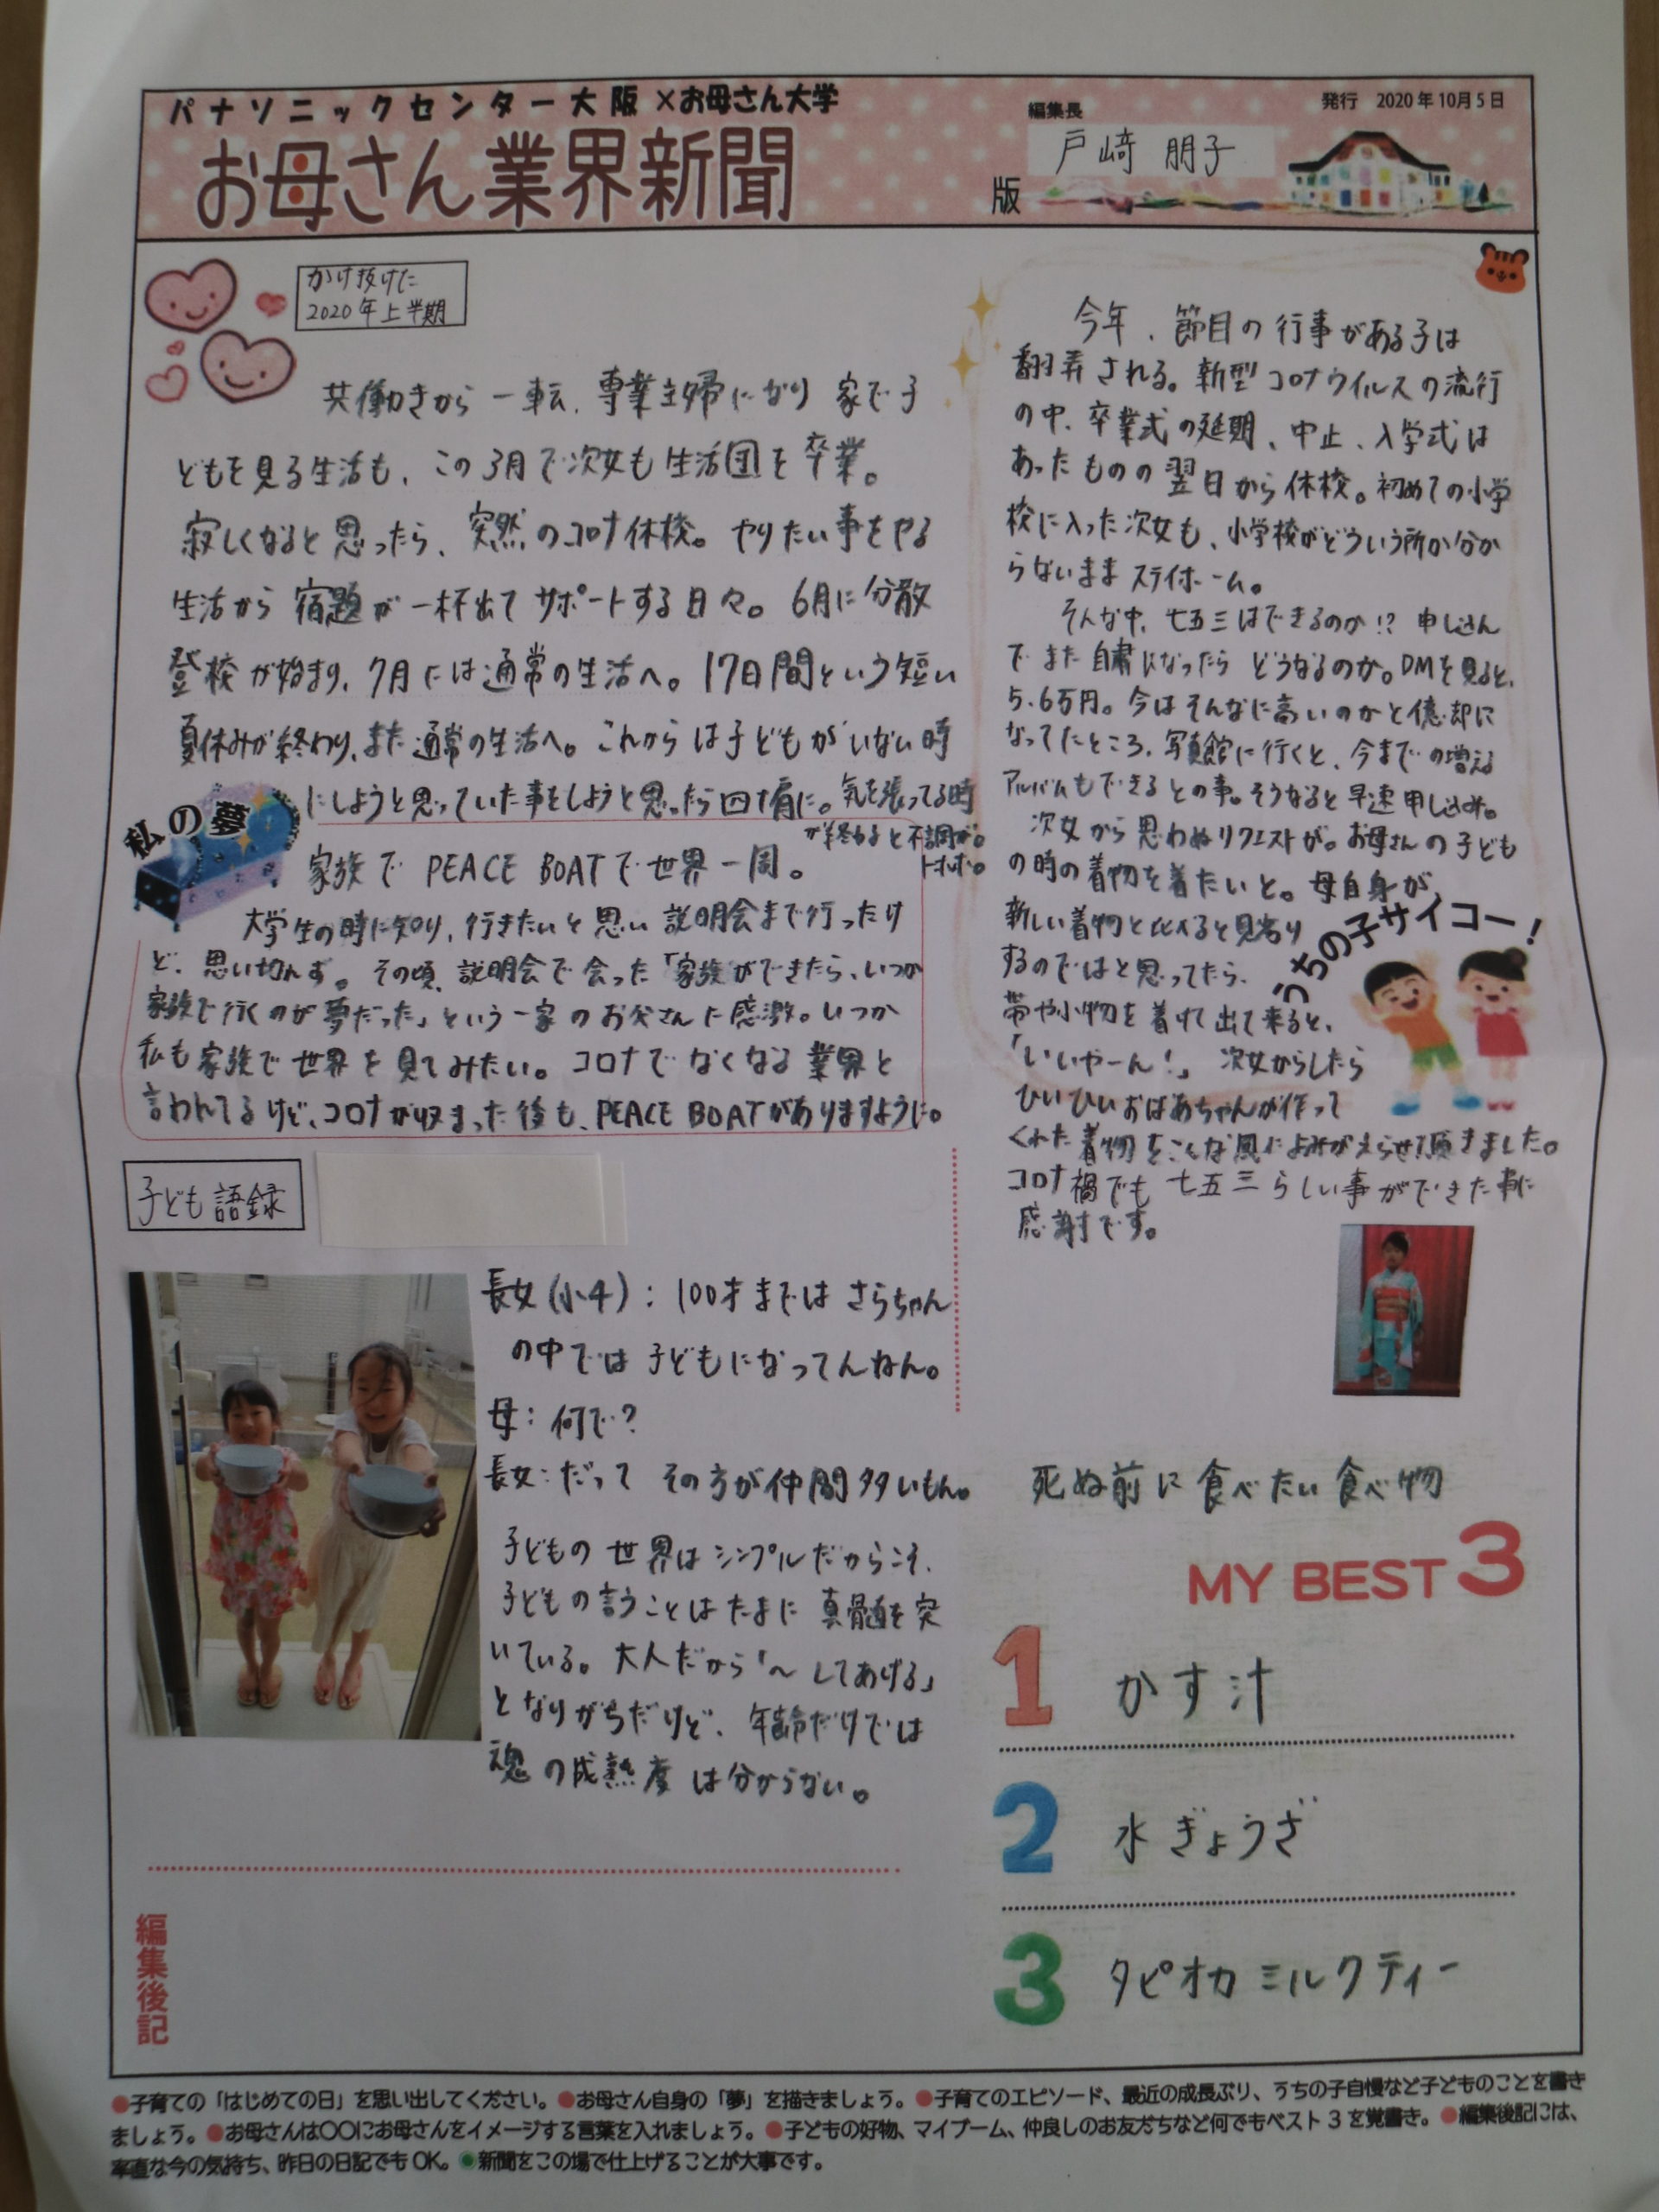 パナソニックセンター大阪×お母さん大学
お母さん業界新聞
版
編集長
戸崎 朋子
発行 2020年10月5日
かけ抜けた
2020年上半期
共働きから一転、専業主婦になり家で子
どもを見る生活も、この3月で次女も生活団を卒業。
寂しくなると思ったら、突然のコロナ休校。やりたい事をやる
生活から宿題が一杯出てサポートする日々。6月に分散
登校が始まり、7月には通常の生活へ。17日間という短い
夏休みが終わり、また通常の生活へ。これからは子どもがいない時
にしようと思っていた事をしようと思ったら四十肩に。気を張ってる時
が終わると不調が。
トホホ。
私の夢
家族でPEACE BOATで世界一周。
大学生の時に知り、行きたいと思い説明会まで行ったけ
ど、思い切れず。その頃、説明会で会った「家族ができたら、いつか
家族で行くのが夢だった」という一家のお父さんに感激。いつか
私も家族で世界を見てみたい。コロナでなくなる業界と
言われてるけど、コロナが収まった後も、PEACE BOATがありますように。
子ども語録
長女(小4):100才まではさらちゃん
の中では子どもになってんねん。
母:何で?
長女:だってその方が仲間多いもん。
子どもの世界はシンプルだからこそ、
子どもの言うことはたまに真髄を突
いている。大人だから「〜してあげる」
となりがちだけど、年齢だけでは
魂の成熟度は分からない。
編集後記
今年、節目の行事がある子は
翻弄される。新型コロナウイルスの流行
の中、卒業式の延期、中止、入学式は
あったものの翌日から休校。初めての小学
校に入った次女も、小学校がどういう所か分か
らないままステイホーム。
そんな中、七五三はできるのか!?申し込ん
でまた自粛になったらどうなるのか。DMを見ると、
5、6万円。今はそんなに高いのかと億劫に
なってたところ、写真館に行くと、今までの増える
アルバムもできるとの事。そうなると早速申し込み。
次女から思わぬリクエストが。お母さんの子ども
の時の着物を着たいと。母自身が、
新しい着物と比べると見劣り
するのではと思ってたら、
帯や小物を着けて出て来ると、
「いいやーん!」次女からしたら
ひいひいおばあちゃんが作って
くれた着物をこんな風によみがえらせて頂きました。
コロナ禍でも七五三らしい事ができた事に
感謝です。
うちの子サイコー!
死ぬ前に食べたい食べ物
MY BEST 3
1 かす汁
2 水ぎょうざ
3 タピオカミルクティー
●子育ての「はじめての日」を思い出してください。●お母さん自身の「夢」を描きましょう。●子育てのエピソード、最近の成長ぶり、うちの子自慢など子どものことを書き
ましょう。●お母さんは〇〇にお母さんをイメージする言葉を入れましょう。●子どもの好物、マイブーム、仲良しのお友だちなど何でもベスト3を覚書き。●編集後記には、
率直な今の気持ち、昨日の日記でもOK。●新聞をこの場で仕上げることが大事です。